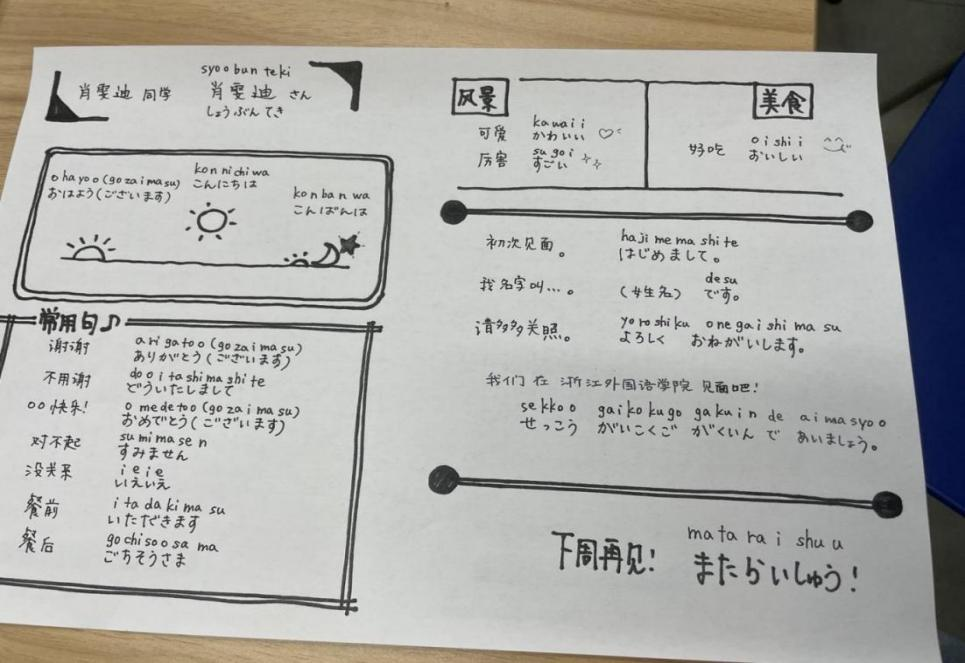 syoo bun teki
肖雯迪 同学 肖雯迪 さん
しょうぶんてき
ohayoo (gozaimasu)
おはよう(ございます)
konnichiwa
こんにちは
konbanwa
こんばんは
常用句♪
谢谢 arigatoo (gozaimasu)
ありがとう(ございます)
不用谢 dooitashimashite
どういたしまして
○○快乐! omedetoo (gozaimasu)
おめでとう(ございます)
对不起 sumimasen
すみません
没关系 ieie
いえいえ
餐前 itadakimasu
いただきます
餐后 gochisoosama
ごちそうさま
风景
可爱 kawaii
かわいい
厉害 sugoi
すごい
美食
好吃 oishii
おいしい
初次见面。 hajimemashite
はじめまして。
我名字叫...。 desu
(女生名) です。
请多多关照。 yoroshiku onegaishimasu
よろしく おねがいします。
我们 在 浙江外国语学院 见面吧!
sekkoo gaikokugo gakuin de aimasyoo
せっこう がいこくご がくいん で あいましょう。
下周再见! mata raishuu
またらいしゅう!